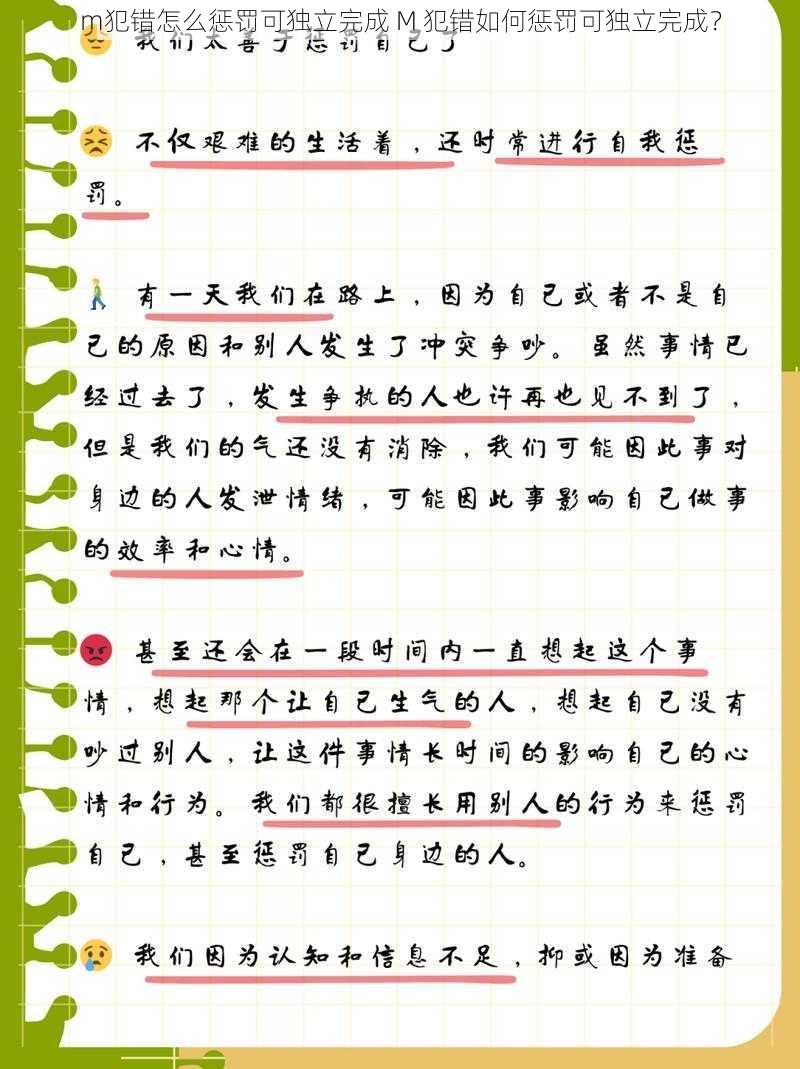 m犯错怎么惩罚可独立完成 M 犯错如何惩罚可独立完成？
我们太善于惩罚自己了
不仅艰难的生活着，还时常进行自我惩
罚。
有一天我们在路上，因为自己或者不是自
己的原因和别人发生了冲突争吵。虽然事情已
经过去了，发生争执的人也许再也见不到了，
但是我们的气还没有消除，我们可能因此事对
身边的人发泄情绪，可能因此事影响自己做事
的效率和心情。
甚至还会在一段时间内一直想起这个事
情，想起那个让自己生气的人，想起自己没有
吵过别人，让这件事情长时间的影响自己的心
情和行为。我们都很擅长用别人的行为来惩罚
自己，甚至惩罚自己身边的人。
我们因为认知和信息不足，抑或因为准备